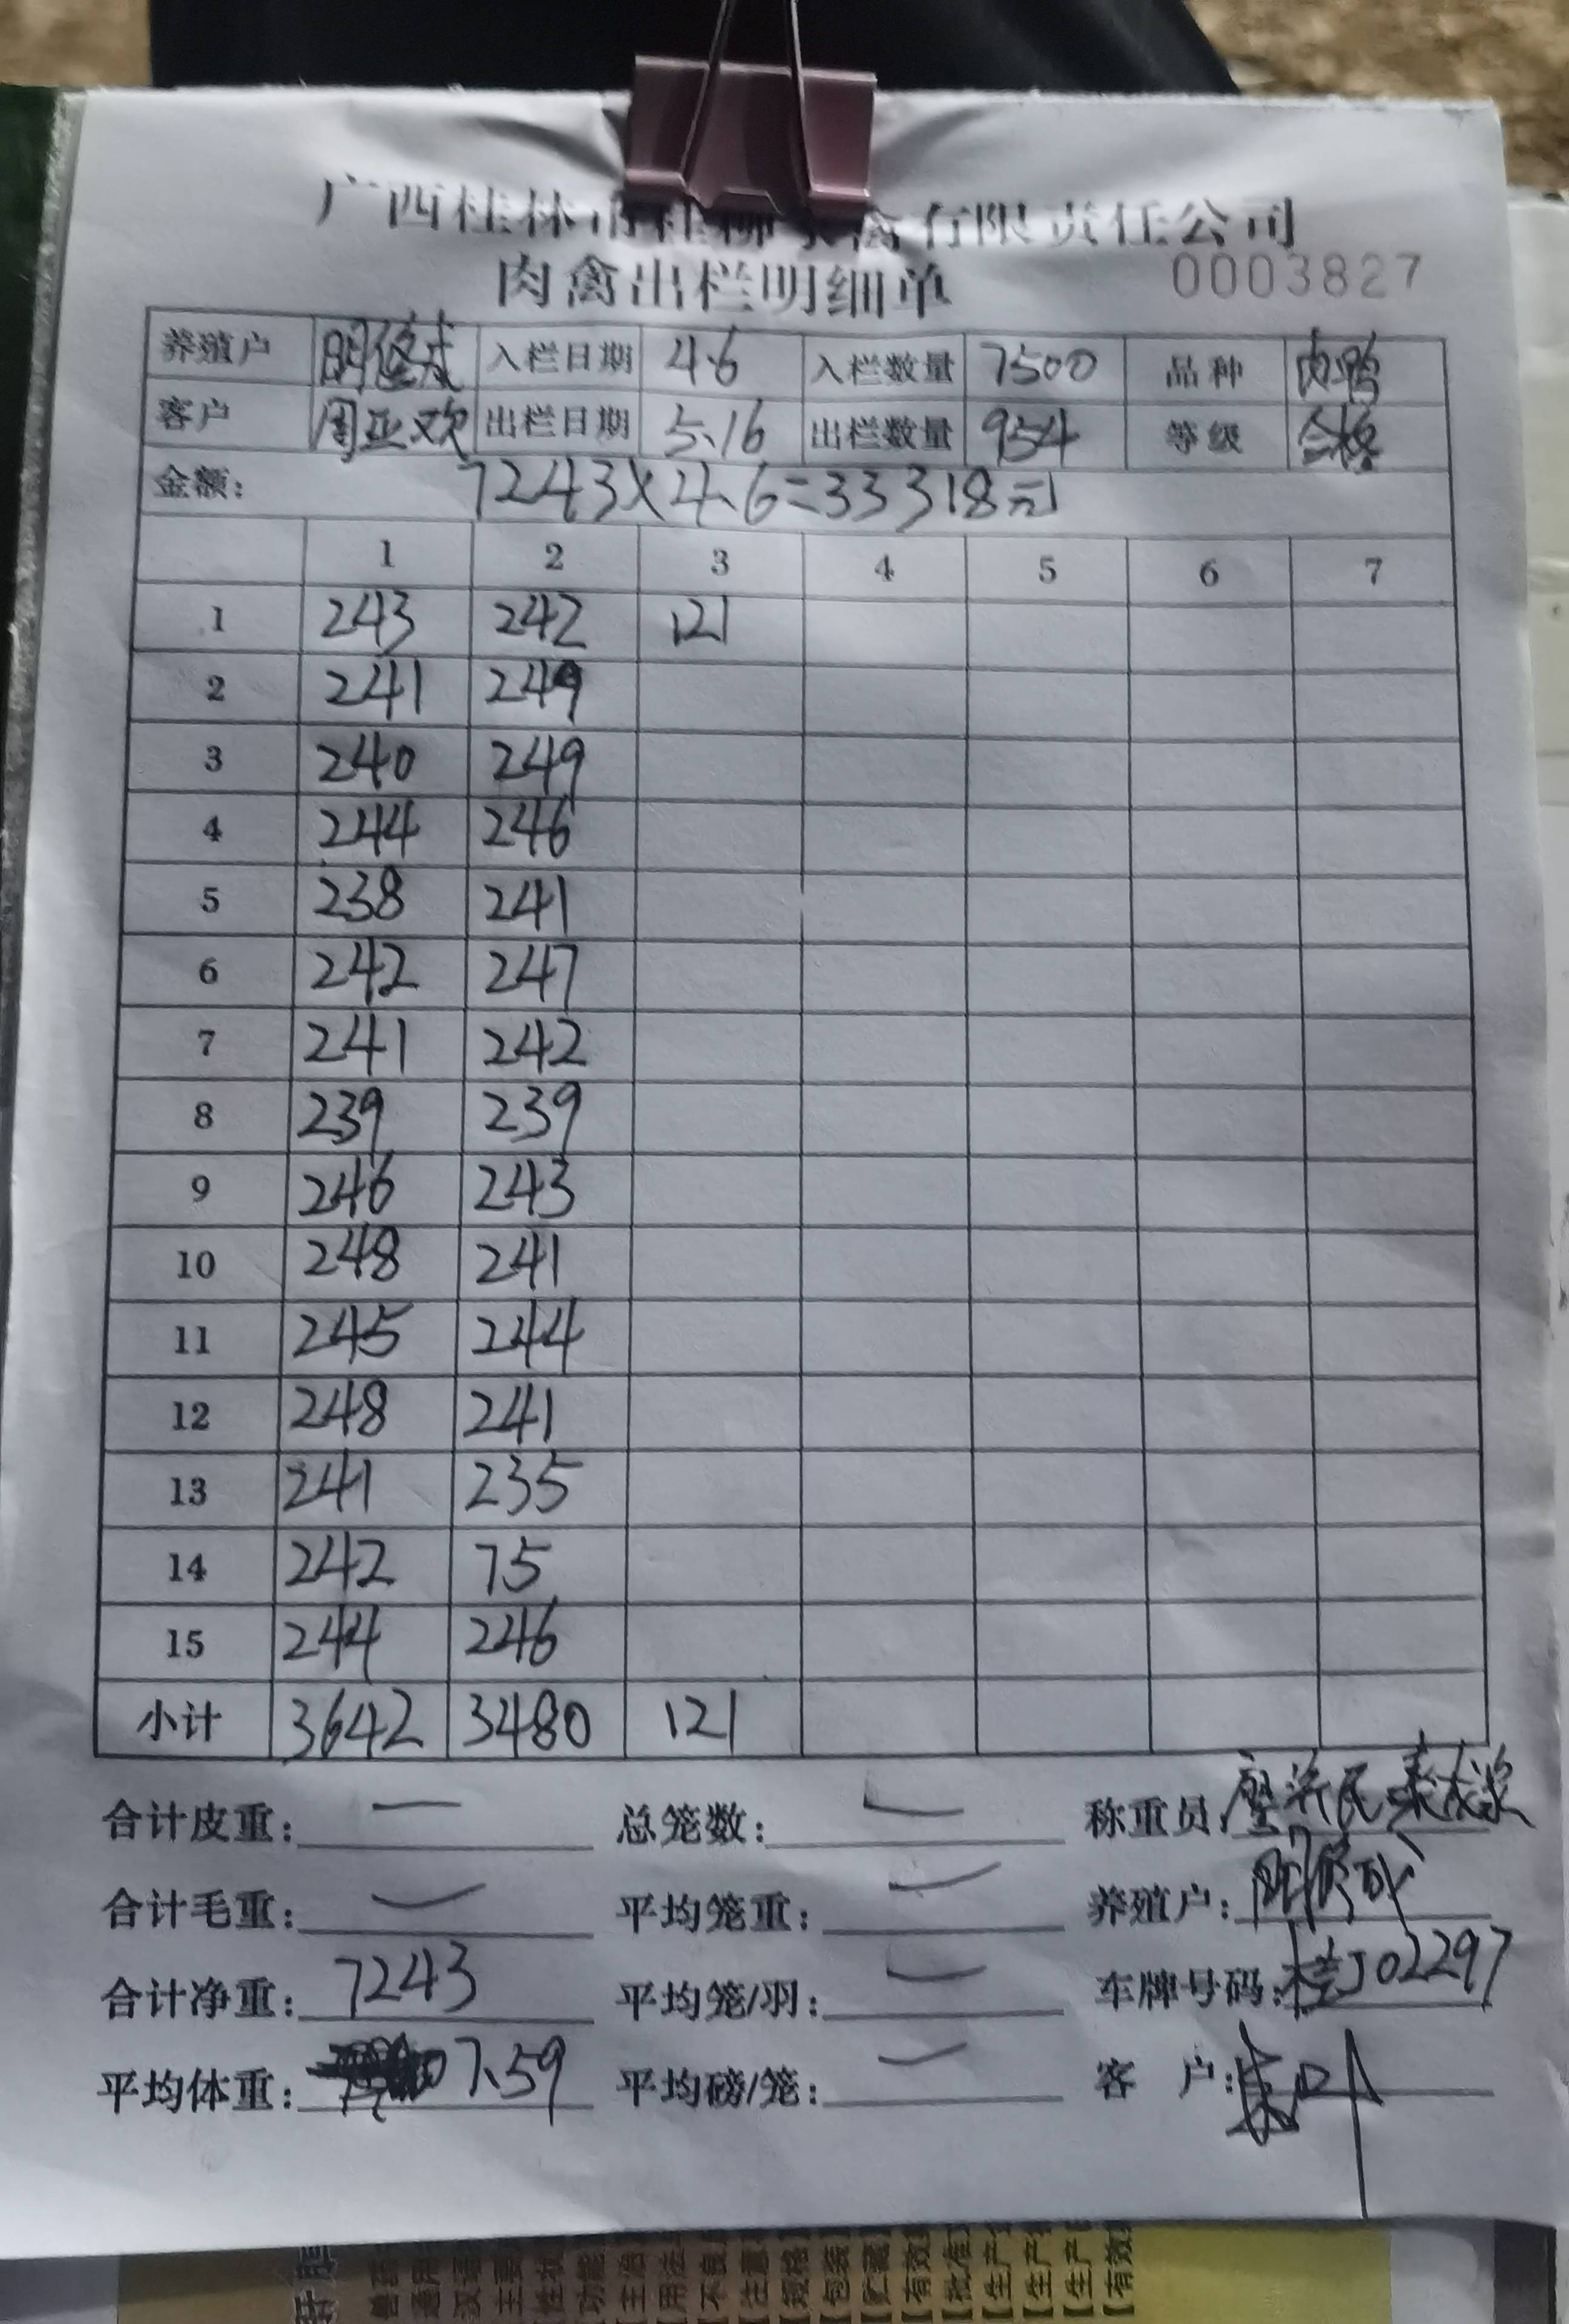 广西桂林市桂柳家禽有限责任公司
肉禽出栏明细单 0003827
养殖户 阳修成 入栏日期 4.6 入栏数量 7500 品种 肉鸭
客户 周亚欢 出栏日期 5.16 出栏数量 954 等级 合格
金额: 7243×4.6=33318元
1 2 3 4 5 6 7
1 243 242 121
2 241 249
3 240 249
4 244 246
5 238 241
6 242 247
7 241 242
8 239 239
9 246 243
10 248 241
11 245 244
12 248 241
13 241 235
14 242 75
15 244 246
小计 3642 3480 121
合计皮重: 一 总笼数: 一 称重员:
合计毛重: 一 平均笼重: 一 养殖户: 阳修成
合计净重: 7243 平均笼/羽: 一 车牌号码: 桂J02297
平均体重: 7.59 平均磅/笼: 一 客 户: